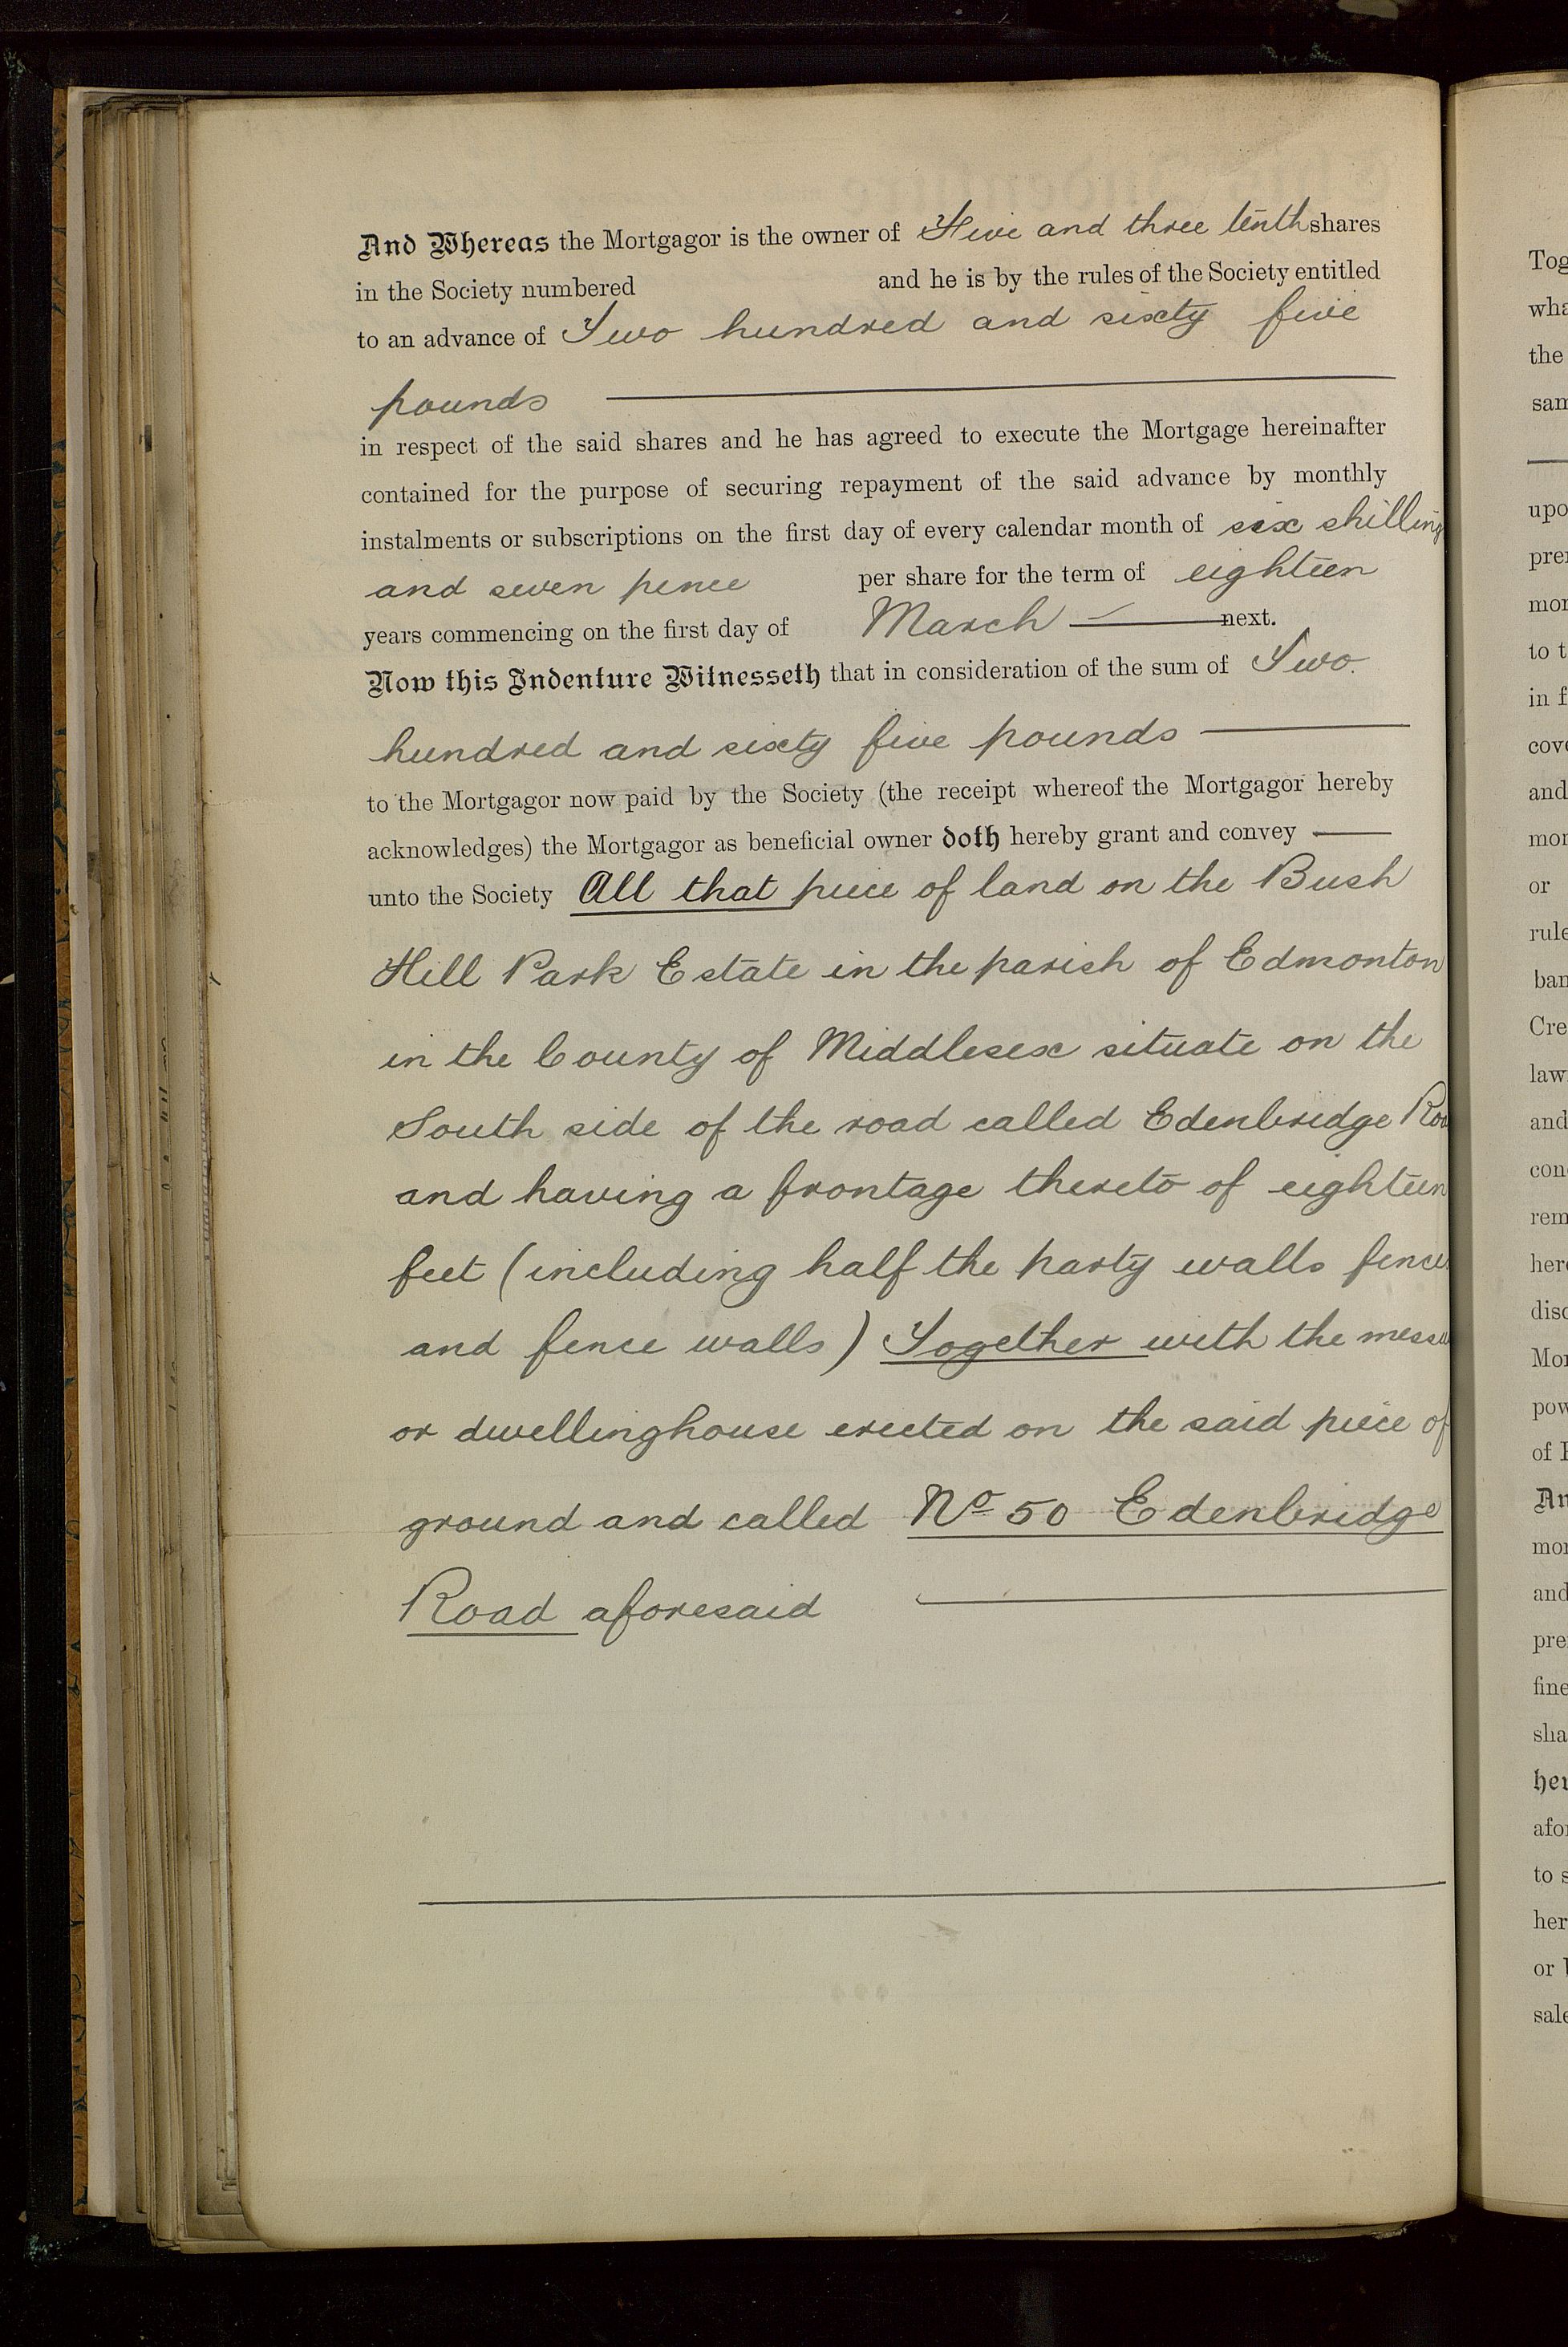 And Whereas the Mortgagor is the owner of Five and three tenth shares
in the Society numbered and he is by the rules of the Society entitled
to an advance of Two hundred and sixty five
pounds
in respect of the said shares and he has agreed to execute the Mortgage hereinafter
contained for the purpose of securing repayment of the said advance by monthly
instalments or subscriptions on the first day of every calendar month of six shilling
and seven pence per share for the term of eighteen
years commencing on the first day of March next.
Now this Indenture Witnesseth that in consideration of the sum of Two
hundred and sixty five pounds
to the Mortgagor now paid by the Society (the receipt whereof the Mortgagor hereby
acknowledges) the Mortgagor as beneficial owner doth hereby grant and convey
unto the Society All that piece of land on the Bush
Hill Park Estate in the parish of Edmonton
in the County of Middlesex situate on the
South side of the road called Edenbridge Roa
and having a frontage thereto of eighteen
feet (including half the party walls fences
and fence walls) Together with the messu
or dwellinghouse erected on the said piece of
ground and called No 50 Edenbridge
Road aforesaid
Tog
wha
the
sam
upo
pre
mor
to t
in f
cove
and
mor
or
rule
ban
Cre
law
and
con
rem
here
disc
Mor
pow
of
An
mor
and
pre
fine
sha
her
afor
to s
her
or
sale